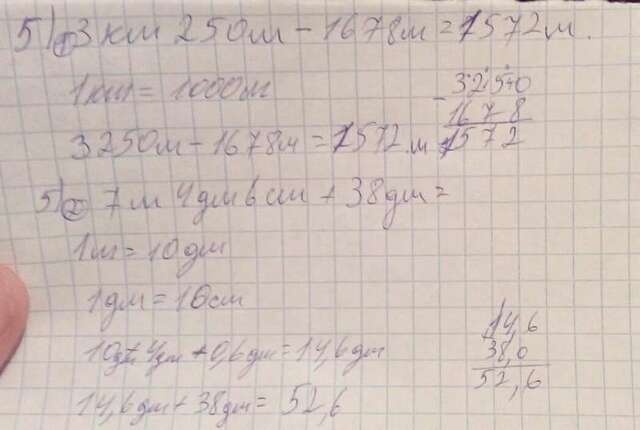 5) 1 3 км 250м - 1678м = 1572м.
1км = 1000м
3250м - 1678м = 1572.м
- 3250
1678
1572
5) 2 7м 4дм 6см + 38дм =
1м = 10дм
1дм = 10см
10дм + 4дм + 0,6дм = 14,6дм
14,6дм + 38дм = 52,6
14,6
38,0
52,6